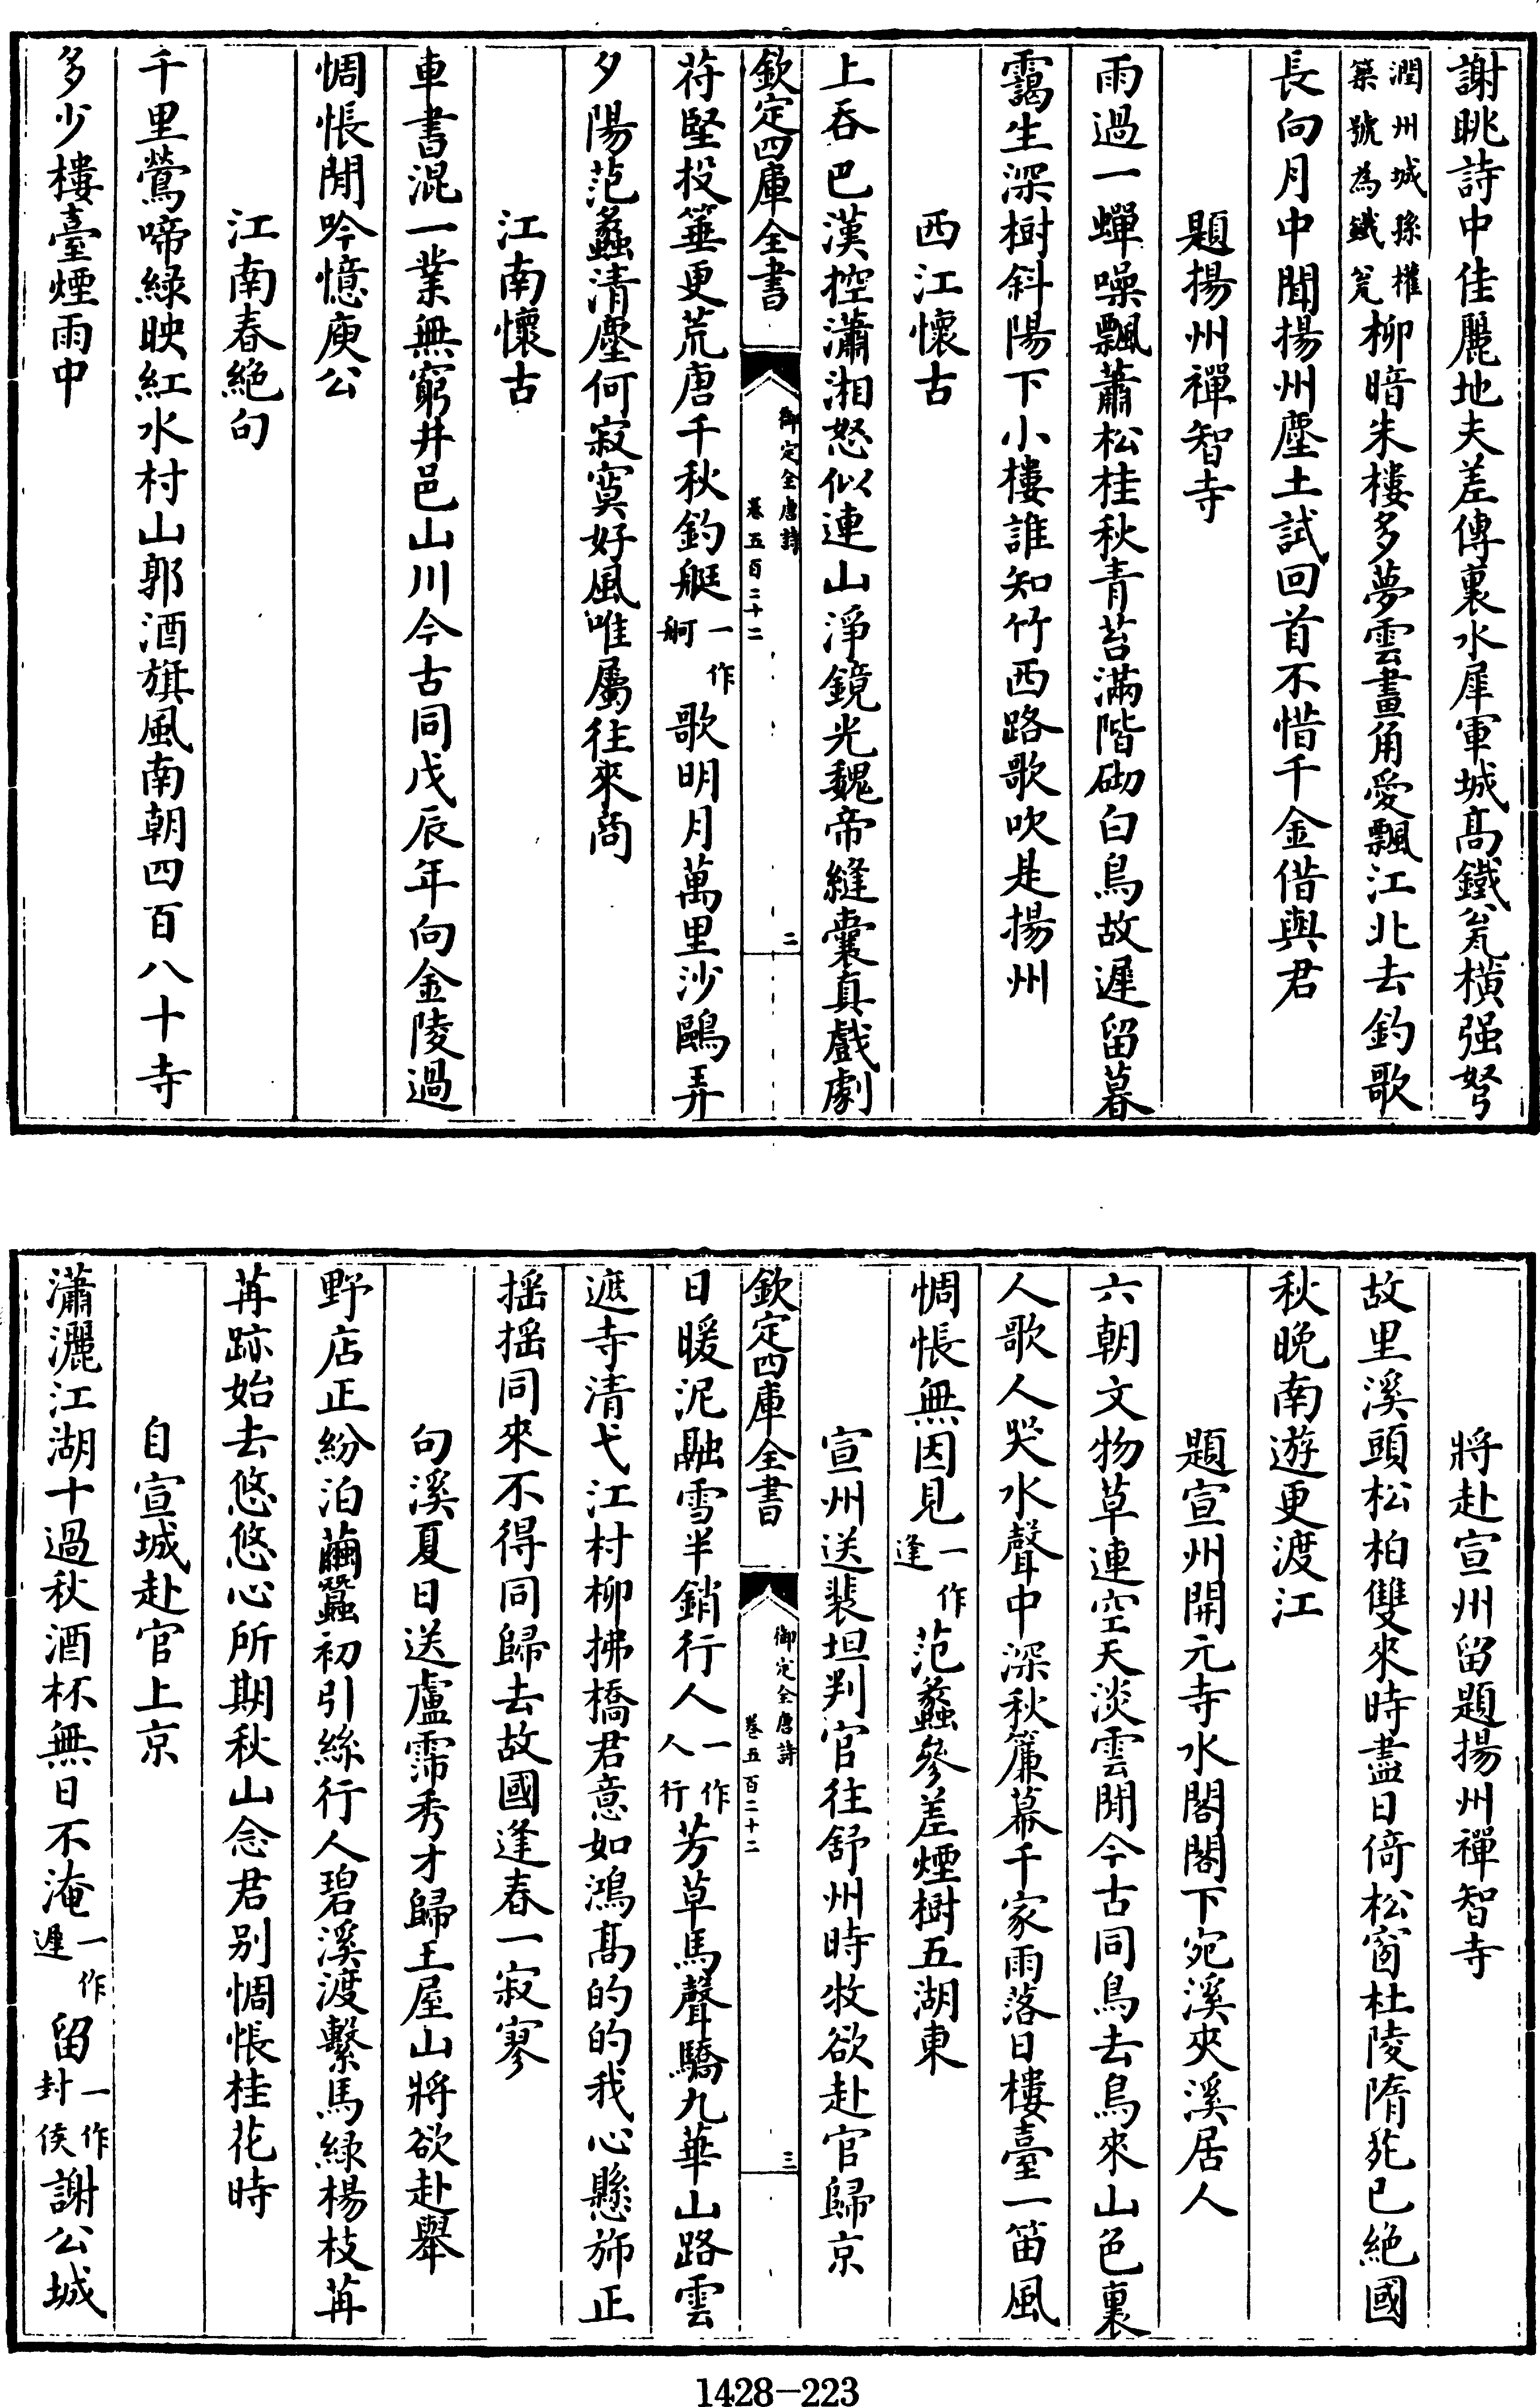 謝眺詩中佳麗地夫差傳裏水犀軍城髙鐵瓮橫强弩
潤州城孫權築號為鐵瓮柳暗朱樓多夢雲畫角愛飄江北去釣歌
長向月中聞揚州塵土試回首不惜千金借與君
題揚州禪智寺
雨過一蟬噪飄蕭松桂秋青苔滿階砌白鳥故遲留暮
靄生深樹斜陽下小樓誰知竹西路歌吹是揚州
西江懷古
上吞巴漢控瀟湘怒似連山淨鏡光魏帝縫囊真戲劇
欽定四庫全書
御定全唐詩
卷五百二十二
二
苻堅投箠更荒唐千秋釣艇一作舸歌明月萬里沙鷗弄
夕陽范蠡清塵何寂寞好風唯屬往來商
江南懷古
車書混一業無窮井邑山川今古同戊辰年向金陵過
惆悵閒吟憶庾公
江南春絶句
千里鶯啼緑映紅水村山郭酒旗風南朝四百八十寺
多少樓臺煙雨中
將赴宣州留題揚州禪智寺
故里溪頭松柏雙來時盡日倚松窗杜陵隋苑已絶國
秋晚南遊更渡江
題宣州開元寺水閣閣下宛溪夾溪居人
六朝文物草連空天淡雲閒今古同鳥去鳥來山色裏
人歌人哭水聲中深秋簾幕千家雨落日樓臺一笛風
惆悵無因見一作逢范蠡參差煙樹五湖東
宣州送裴坦判官往舒州時牧欲赴官歸京
欽定四庫全書
御定全唐詩
卷五百二十二
三
日暖泥融雪半銷行人一作人行芳草馬聲驕九華山路雲
遮寺清弋江村柳拂橋君意如鴻髙的的我心懸斾正
揺揺同來不得同歸去故國逢春一寂寥
句溪夏日送盧霈秀才歸王屋山將欲赴舉
野店正紛泊繭蠶初引絲行人碧溪渡繫馬緑楊枝苒
苒跡始去悠悠心所期秋山念君别惆悵桂花時
自宣城赴官上京
瀟灑江湖十過秋酒杯無日不淹一作遲留一作封侯謝公城
1428-223